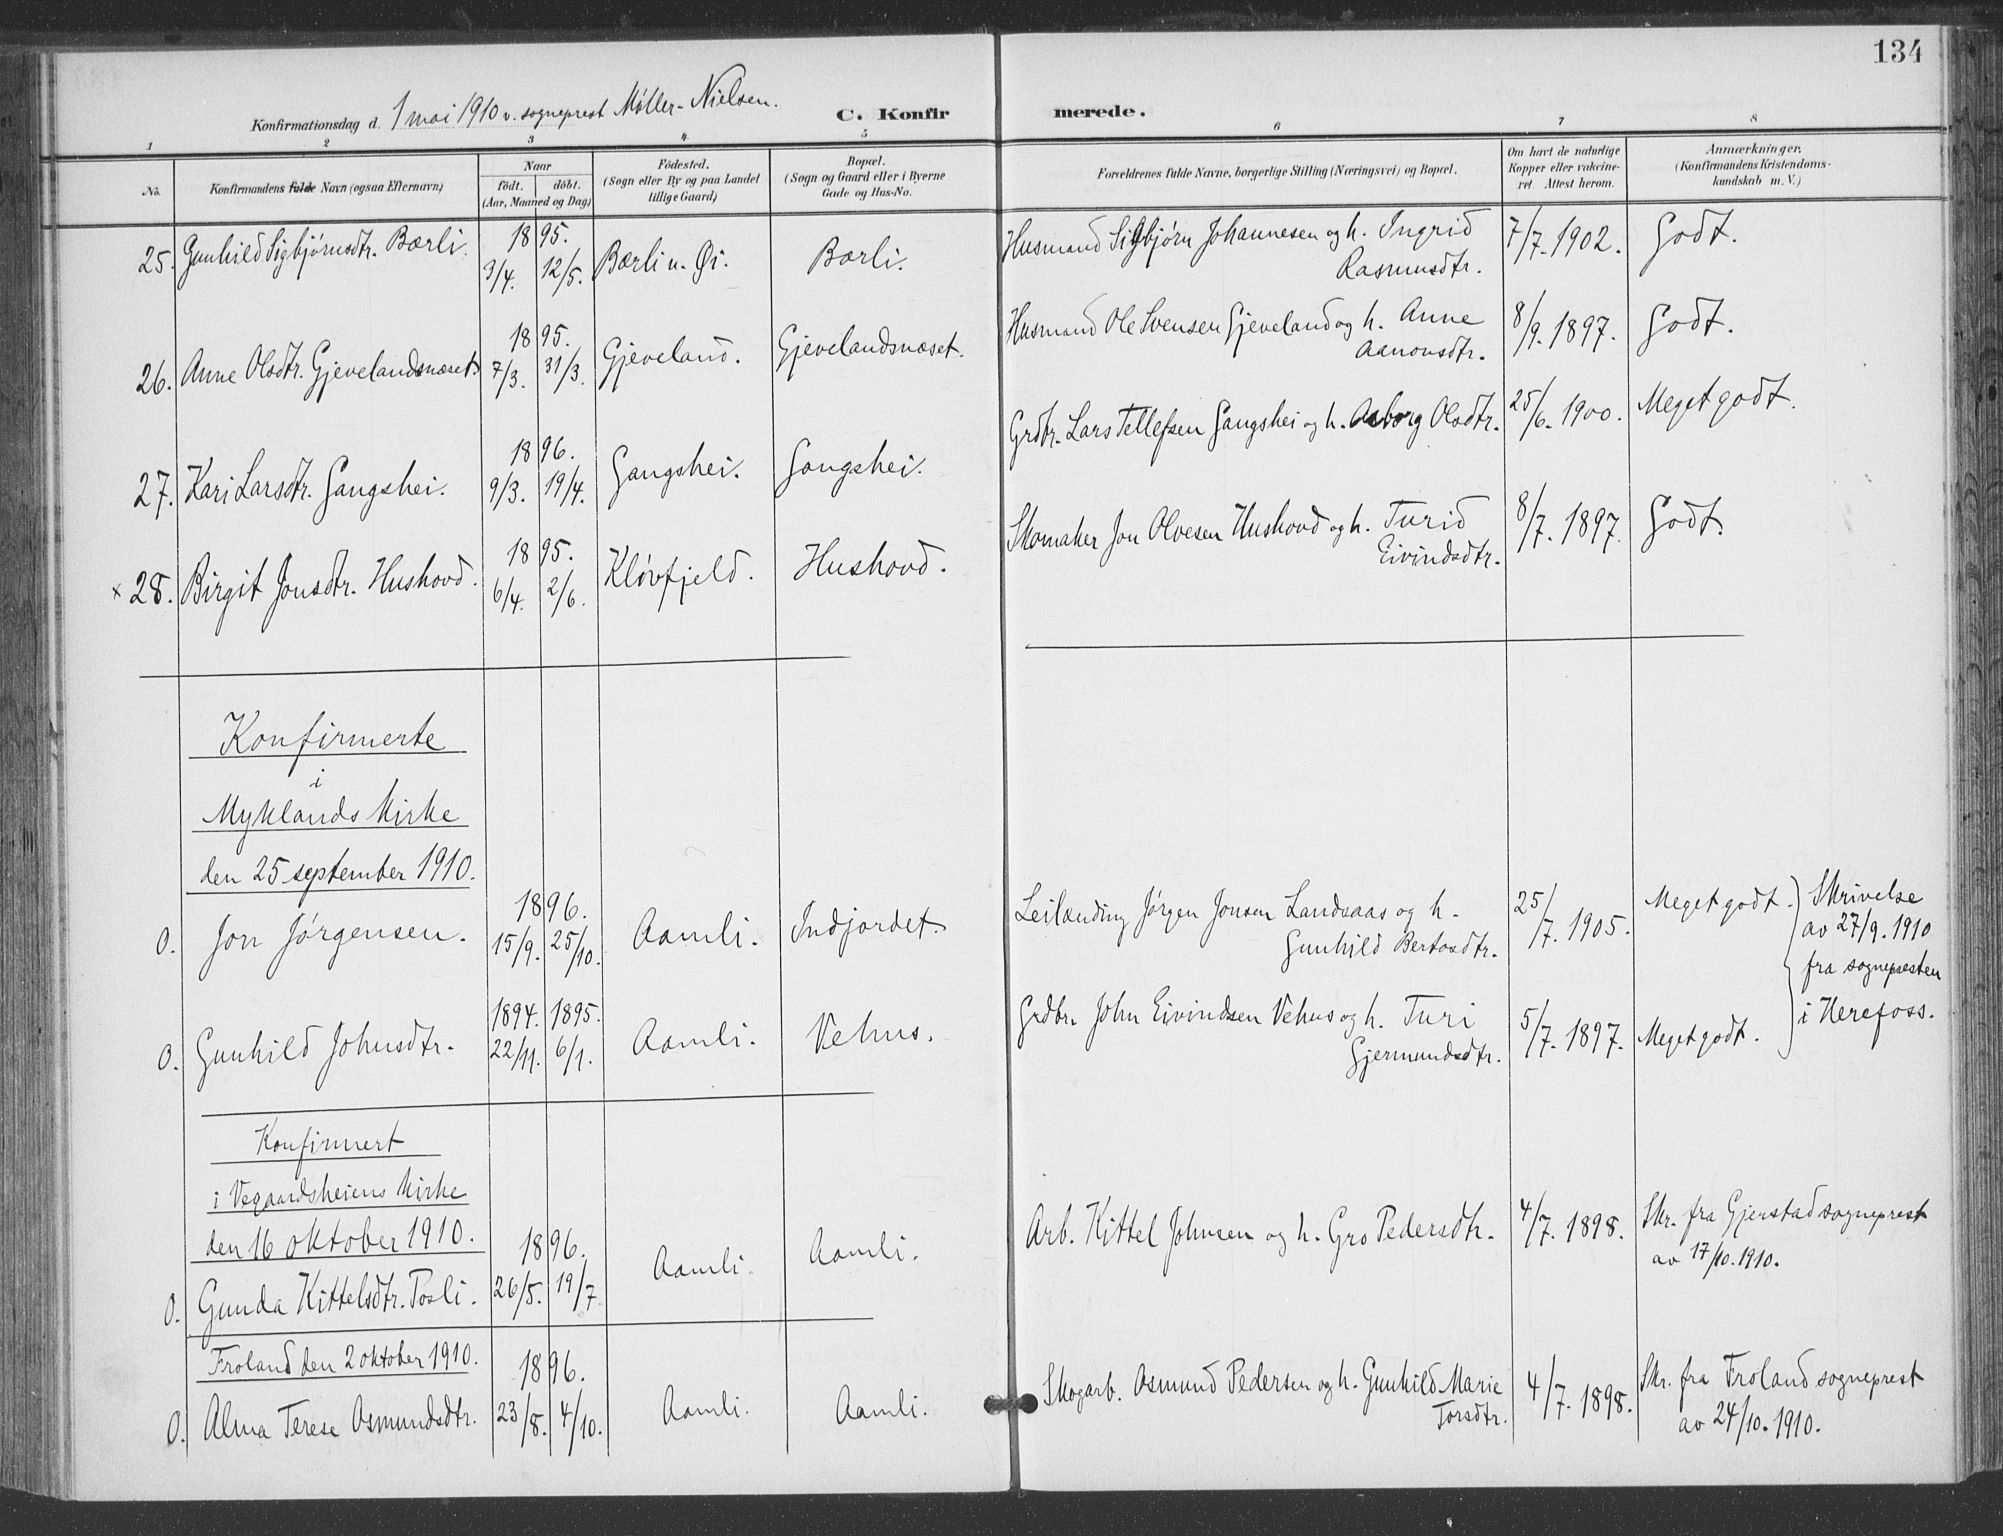 134
Konfirmationsdag d. 1 mai 1910 v. sogneprest Møller-Nielsen. C. Konfir merede.
1 2 3 4. 5 6 7 8
No. Konfirmandens fulde Navn (ogsaa Efternavn) Naar födt. döbt. (Aar, Maaned og Dag) Födested. (Sogn eller By og paa Landet tillige Gaard) Bopæl. (Sogn og Gaard eller i Byerne Gade og Hus-No. Forældrenes fulde Navne, borgerlige Stilling (Næringsvei) og Bopæl. Om havt de naturlige Kopper eller vakcineret. Attest herom. Anmærkninger. (Konfirmandens Kristendomskundskab m. V.)
25. Gunhild Sigbjørnsdtr. Bærli. 1895. 3/4. 12/5. Bærli u. Øi. Bærli. Husmand Sigbjørn Johannesen og h. Ingrid Rasmusdtr. 7/7. 1902. Godt.
26. Anne Olsdtr. Gjevelandsnæset. 1895. 7/3. 31/3. Gjeveland. Gjevelandsnæset. Husmand Ole Svensen Gjeveland og h. Anne Aanonsdtr. 8/9. 1897. Godt.
27. Kari Larsdtr. Gangshei. 1896. 9/3. 19/4. Gangshei. Gangshei. Grdbr. Lars Tellefsen Gangshei og h. Aasborg Olsdtr. 25/6. 1900. Meget godt.
x 28. Birgit Jonsdtr. Hushovd. 1895. 6/4. 2/6. Kløvfjeld. Hushovd. Skomaker Jon Olvesen Hushovd og h. Turid Eivindsdtr. 8/7. 1897. Godt.
Konfirmerte
i
Myklands kirke
den 25 september 1910.
0. Jon Jørgensen. 1896. 15/9. 25/10. Aamli. Indjordet. Leilænding Jørgen Jonsen Landsaas og h. Gunhild Bertosdtr. 25/7. 1905. Meget godt. Skrivelse av 27/9. 1910 fra sognepresten i Herefoss.
0. Gunhild Johnsdtr. 1894. 22/11. 1895. 6/1. Aamli. Vehus. Grdbr. John Eivindsen Vehus og h. Turi Gjermundsdtr. 5/7. 1897. Meget godt.
Konfirmert
i Vegaardsheiens kirke
den 16 oktober 1910.
0. Gunda Kittelsdtr. Posli. 1896. 26/5. 19/7. Aamli. Aamli. Arb. Kittel Johnsen og h. Gro Pedersdtr. 4/7. 1898. Skr. fra Gjerstad sogneprest av 17/10. 1910.
Froland den 2 oktober 1910.
0. Alma Terese Osmundsdtr. 1896. 23/8. 4/10. Aamli. Aamli. Skogarb. Osmund Pedersen og h. Gunhild Marie Torsdtr. 4/7. 1898. Skr. fra Froland sogneprest av 24/10. 1910.